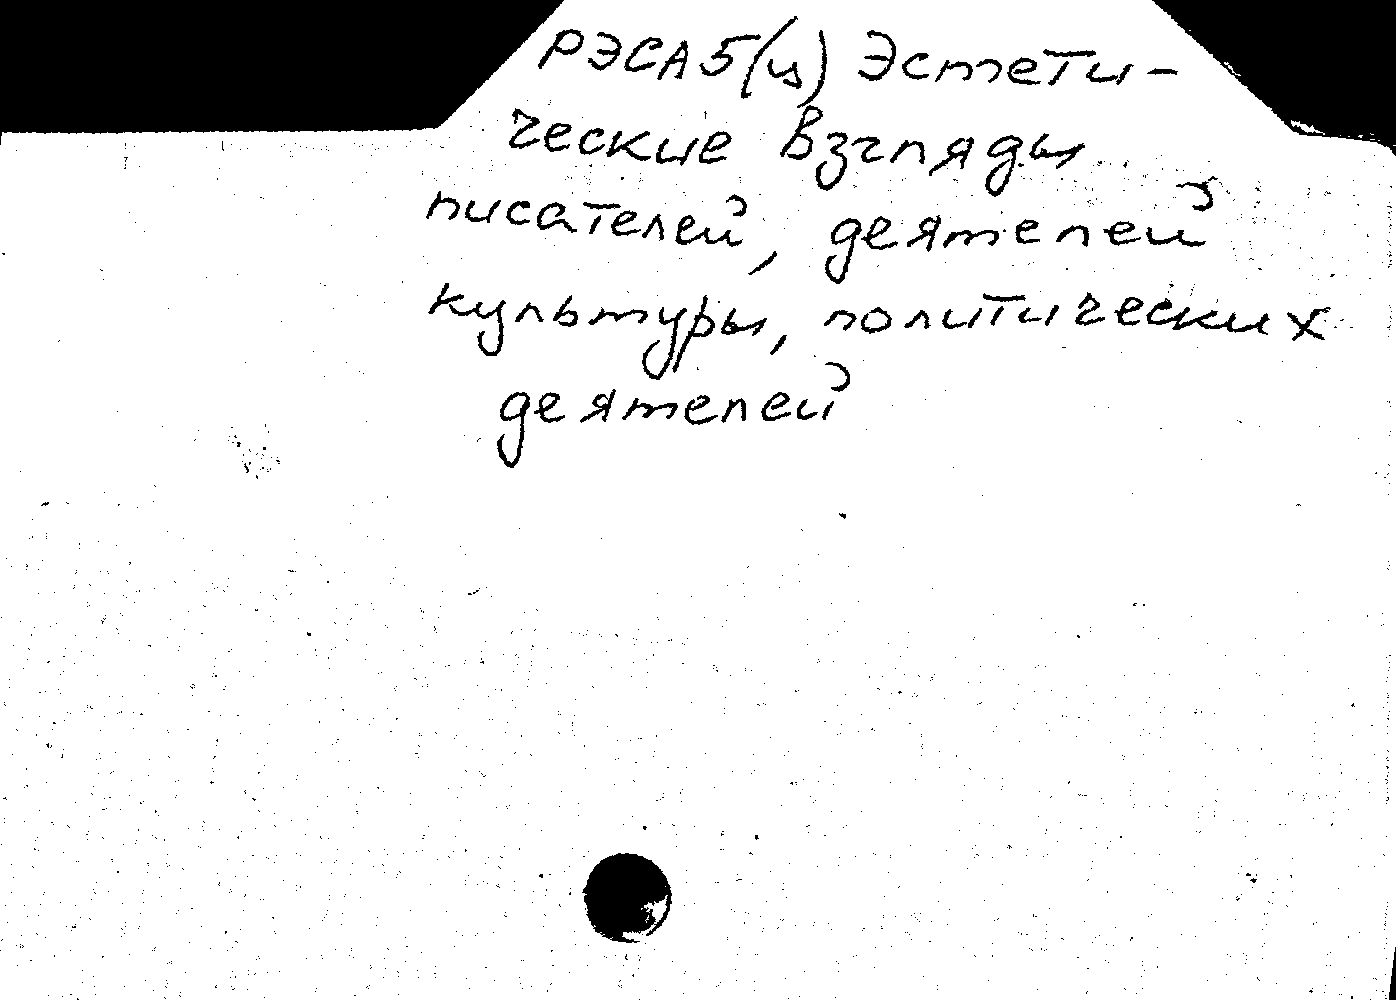 РЭСА5(ц) Эстети-
ческие взгляды
писателей, деятелей
культуры, политических
деятелей